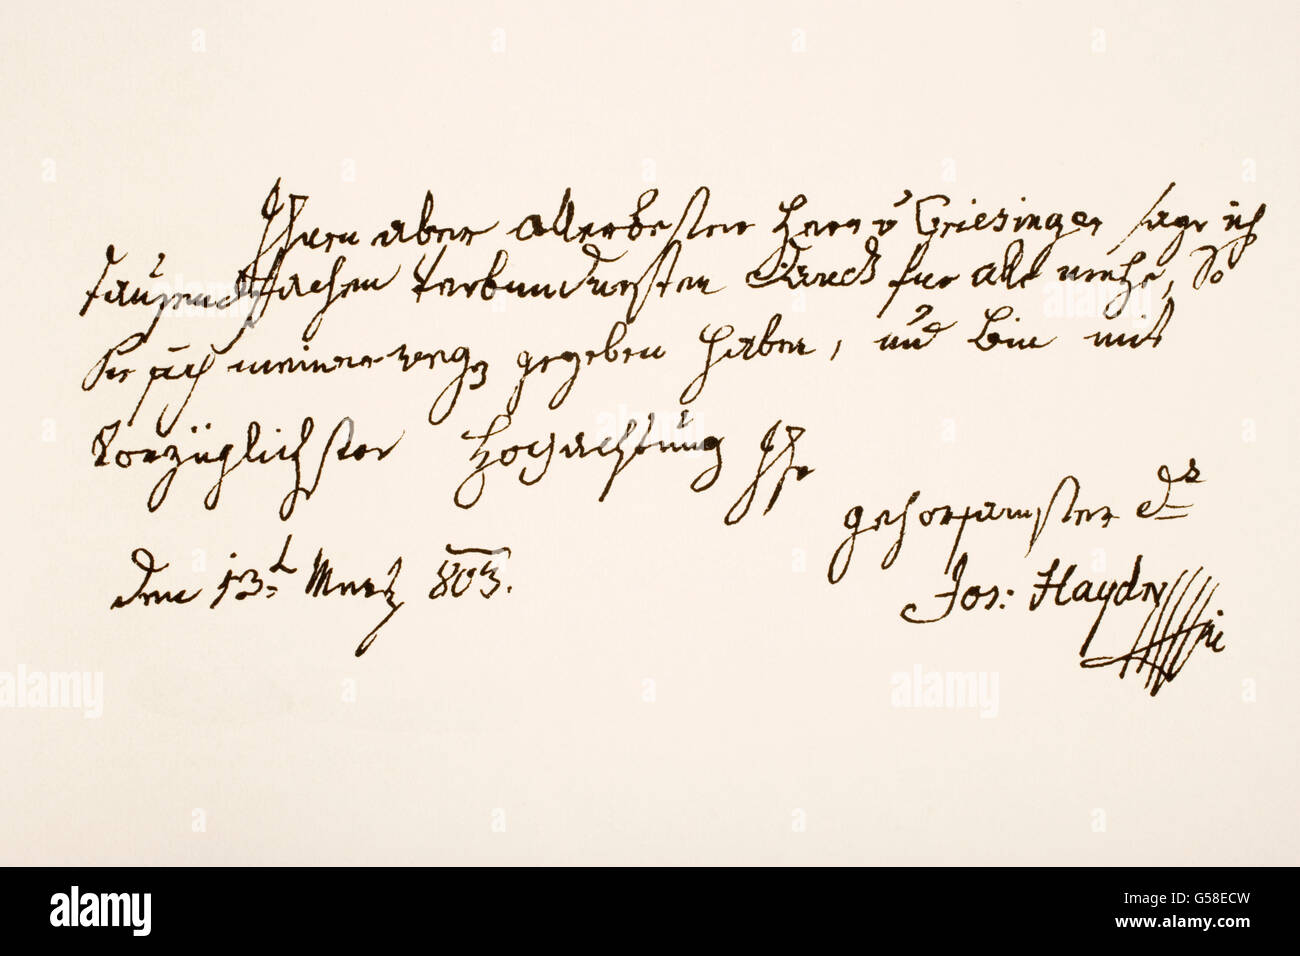 Ihnen aber allerbester Herr v Griesinger sage ich
tausendfachen verbundnesten Danck für alle mühe, So
Sie sich meinerwegen gegeben haben, und bin mit
vorzüglichster Hochachtung Ihr
gehorsamster dr
Jos: Haydn
den 13t Mertz 803.
alamy
Image ID: G58ECW
www.alamy.com